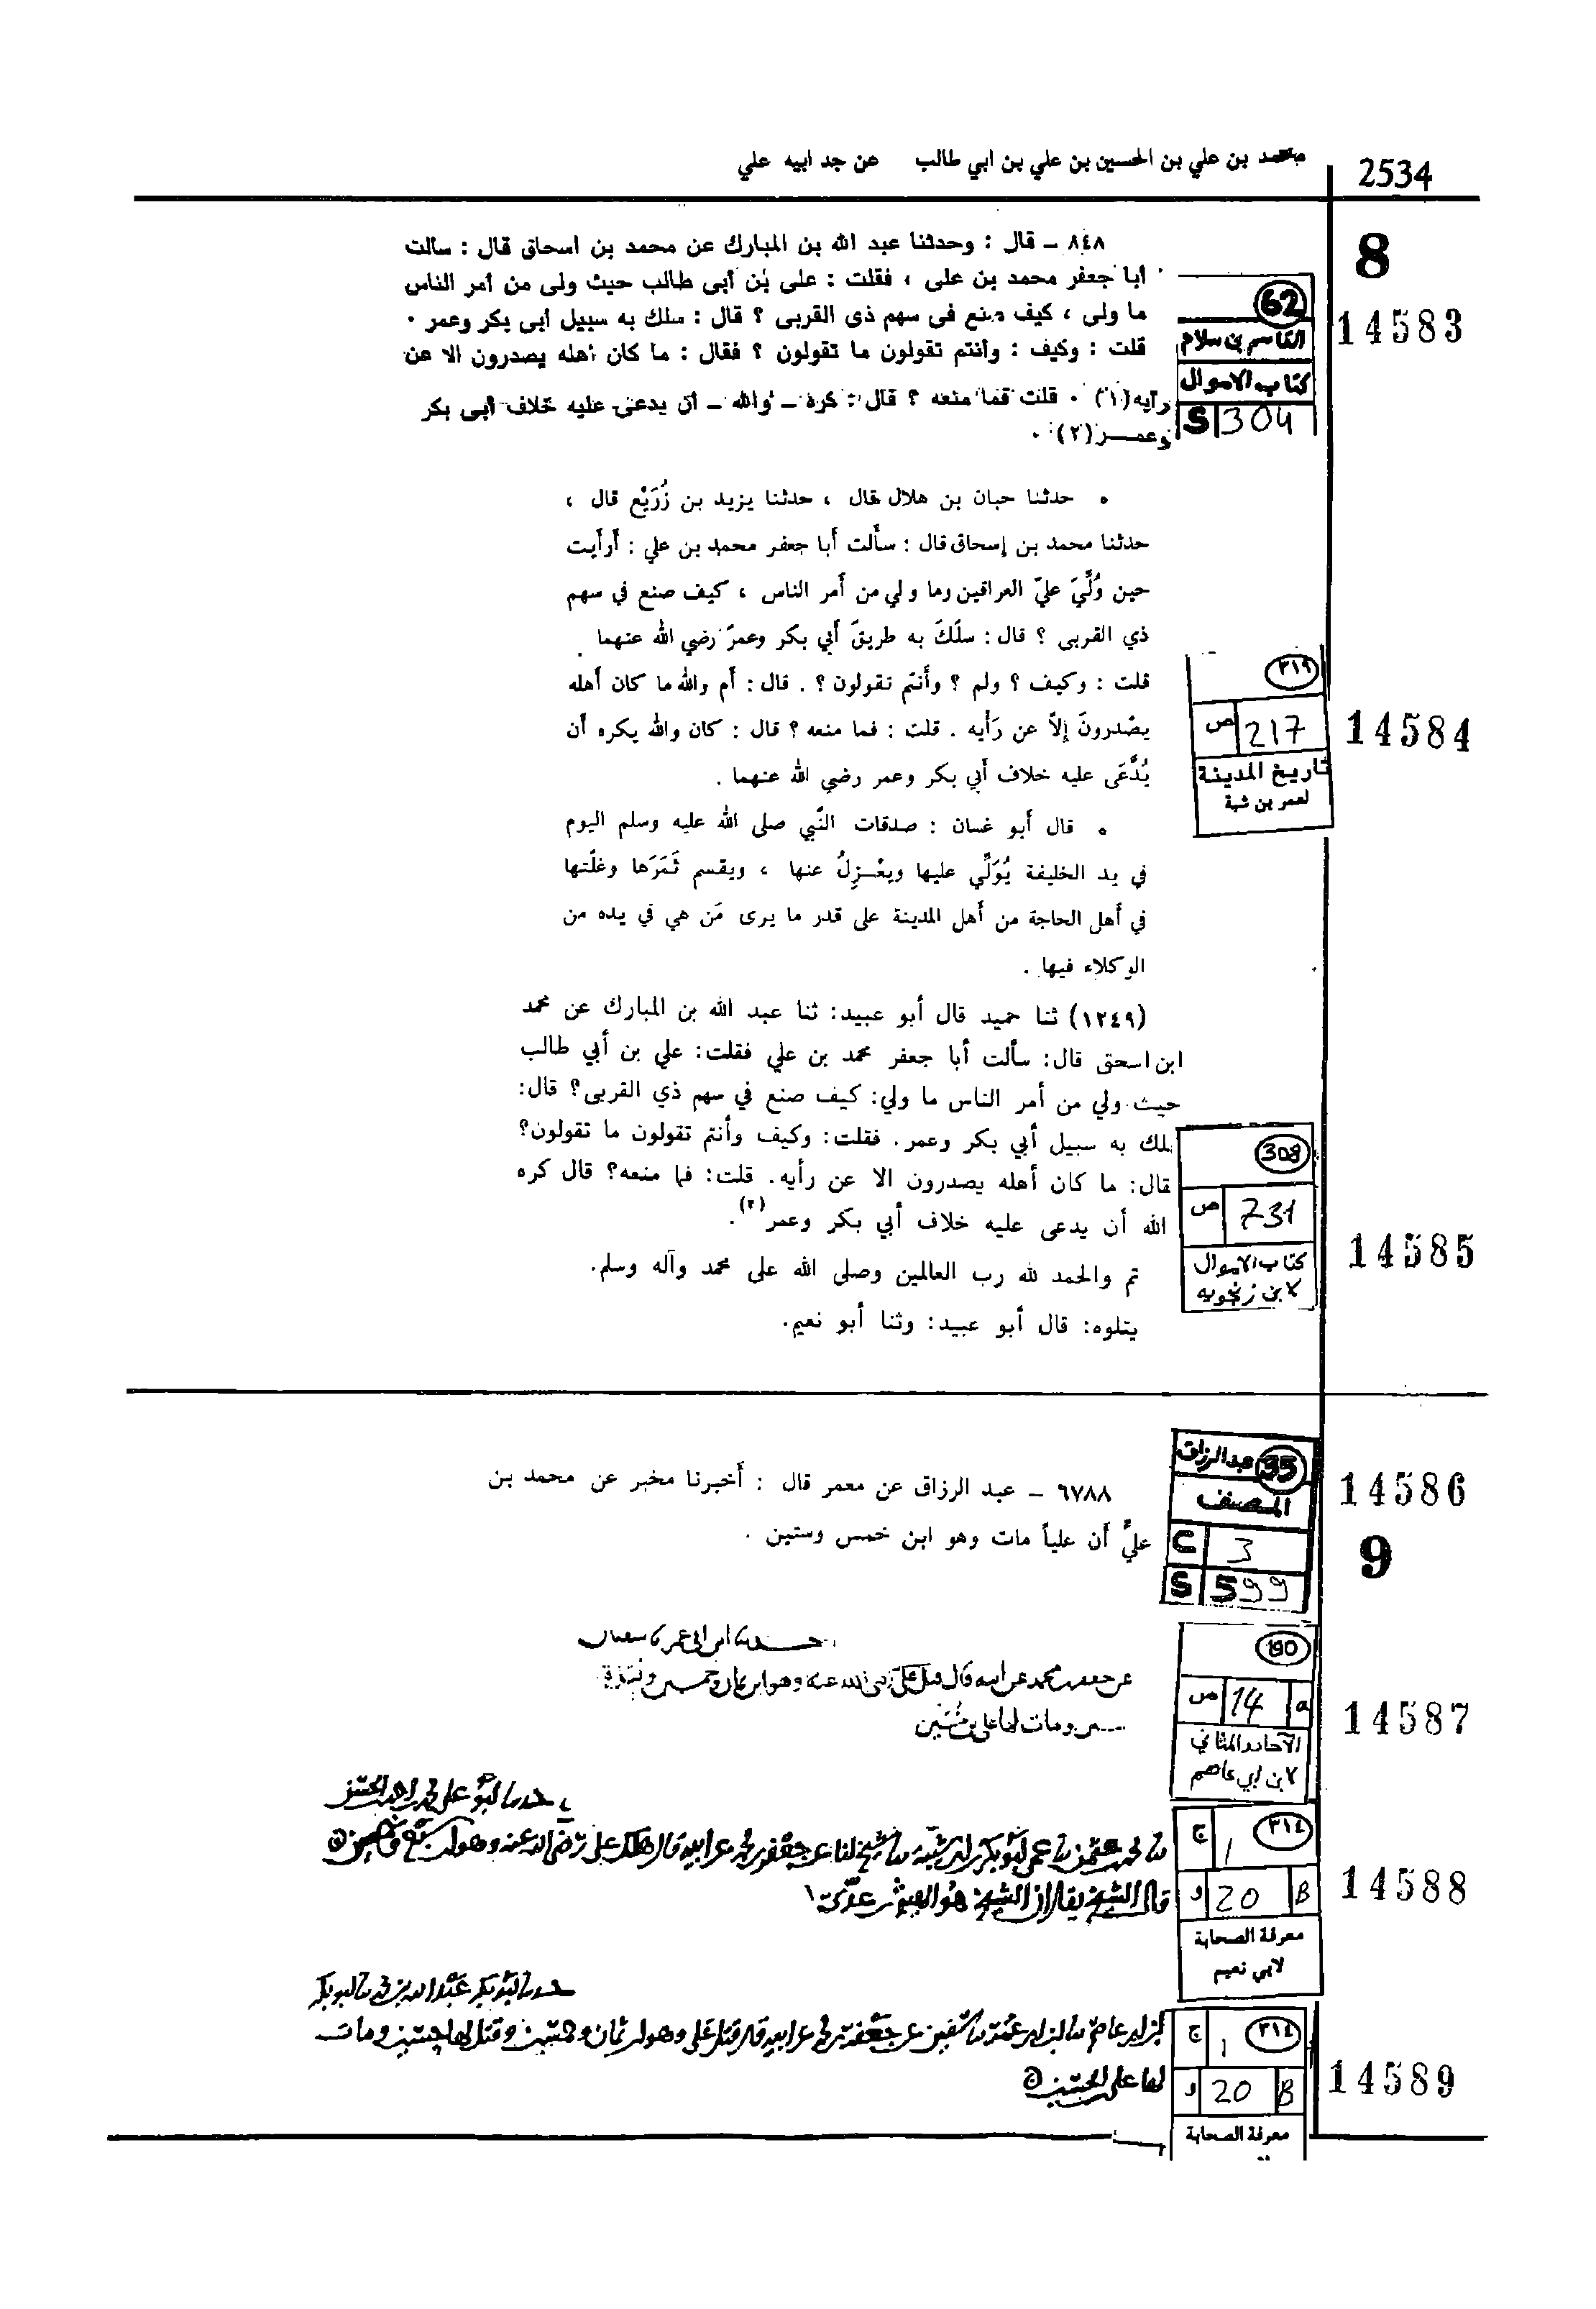 محمد بن علي بن الحسين بن علي بن ابي طالب عن جد ابيه علي
2534
8
٨٤٨ – قال : وحدثنا عبد الله بن المبارك عن محمد بن اسحاق قال : سالت
أبا جعفر محمد بن على ، فقلت : على بن أبى طالب حيث ولى من أمر الناس
ما ولى ، كيف صنع فى سهم ذى القربى ؟ قال : سلك به سبيل أبى بكر وعمر ٠
قلت : وكيف : وأنتم تقولون ما تقولون ؟ فقال : ما كان أهله يصدرون الا عن
رأيه(١) ٠ قلت فما منعه ؟ قال : كره – والله – أن يدعى عليه خلاف أبى بكر
وعمــر(٢) ٠
62
القاسم بن سلام
كتاب الاموال
S 304
14583
٥ حدثنا حبان بن هلال قال ، حدثنا يزيد بن زُرَيْع قال ،
حدثنا محمد بن إسحاق قال : سألت أبا جعفر محمد بن علي : أرأيت
حين وُلِّيَ عليّ العراقين وما ولي من أمر الناس ، كيف صنع في سهم
ذي القربى ؟ قال : سلَكَ به طريقَ أبي بكر وعمرَ رضي الله عنهما .
قلت : وكيف ؟ ولم ؟ وأنتم تقولون ؟ . قال : أم والله ما كان أهله
يصْدرونَ إلاّ عن رَأْيه . قلت : فما منعه ؟ قال : كان والله يكره أن
يُدَّعَى عليه خلاف أبي بكر وعمر رضي الله عنهما .
٥ قال أبو غسان : صدقات النّبي صلى الله عليه وسلم اليوم
في يد الخليفة يُوَلِّي عليها ويعْـزِلُ عنها ، ويقسم ثَمَرَها وغلّتها
في أهل الحاجة من أهل المدينة على قدر ما يرى مَن هي في يده من
الوكلاء فيها .
٣١٩
ص 217
تاريخ المدينة
لعمر بن شبة
14584
(١٢٤٩) ثنا حميد قال أبو عبيد: ثنا عبد الله بن المبارك عن محمد
ابن اسحق قال: سألت أبا جعفر محمد بن علي فقلت: علي بن أبي طالب
حيث ولي من أمر الناس ما ولي: كيف صنع في سهم ذي القربى؟ قال:
سلك به سبيل أبي بكر وعمر. فقلت: وكيف وأنتم تقولون ما تقولون؟
قال: ما كان أهله يصدرون الا عن رأيه. قلت: فما منعه؟ قال كره
الله أن يدعى عليه خلاف أبي بكر وعمر(٢).
تم والحمد لله رب العالمين وصلى الله على محمد وآله وسلم.
يتلوه: قال أبو عبيد: وثنا أبو نعيم.
308
ص 731
كتاب الاموال
لابن زنجويه
14585
٦٧٨٨ – عبد الرزاق عن معمر قال : أخبرنا مخبر عن محمد بن
عليّ أن علياً مات وهو ابن خمس وستين .
35 عبد الرزاق
المصنف
C 3
S 599
14586
9
عن جعفر بن محمد عن ابيه قال قتل علي رضي الله عنه وهو ابن ثمان وخمسين
ومات لها علي بن حسين
190
ص 14 a
الآحاد والمثاني
لابن ابي عاصم
14587
حدثنا ابو علي محمد بن احمد بن الحسن
ثنا محمد بن عثمن ثنا عمي ابو بكر بن ابي شيبة ثنا شيخ لنا عن جعفر بن محمد عن ابيه قال هلك علي رضي الله عنه وهو ابن سبع وخمسين
قال الشيخ يقال ان الشيخ هو الهيثم بن عدي
٣١٤
ج 1
و 20 B
معرفة الصحابة
لابي نعيم
14588
حدثنا ابو بكر عبد الله بن محمد ثنا ابو بكر
ابن ابي عاصم ثنا ابن ابي عمر ثنا سفين عن جعفر بن محمد عن ابيه قال قتل علي وهو ابن ثمان وخمسين وقتل لها حسين ومات
لها علي بن الحسين
٣١٤
ج 1
و 20 B
معرفة الصحابة
14589